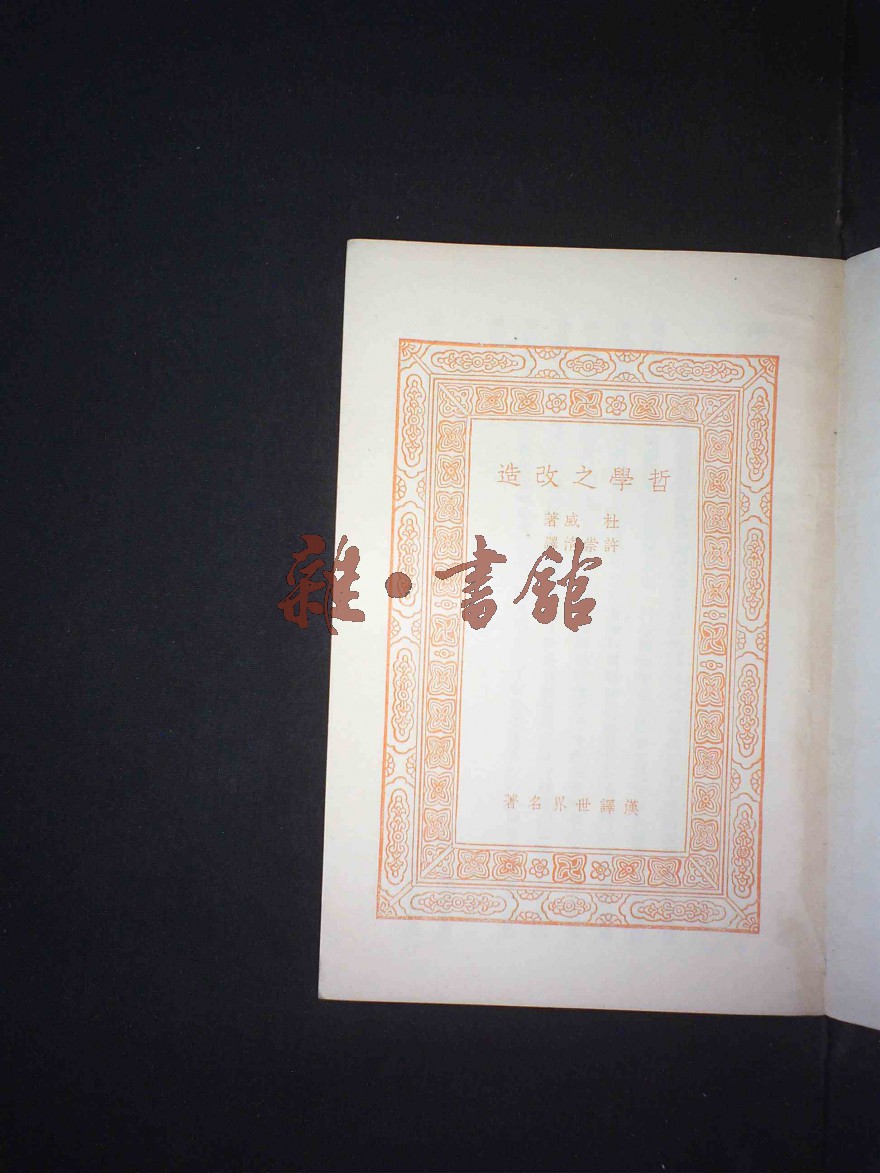 哲學之改造
杜威著
許崇清譯
雜·書館
漢譯世界名著